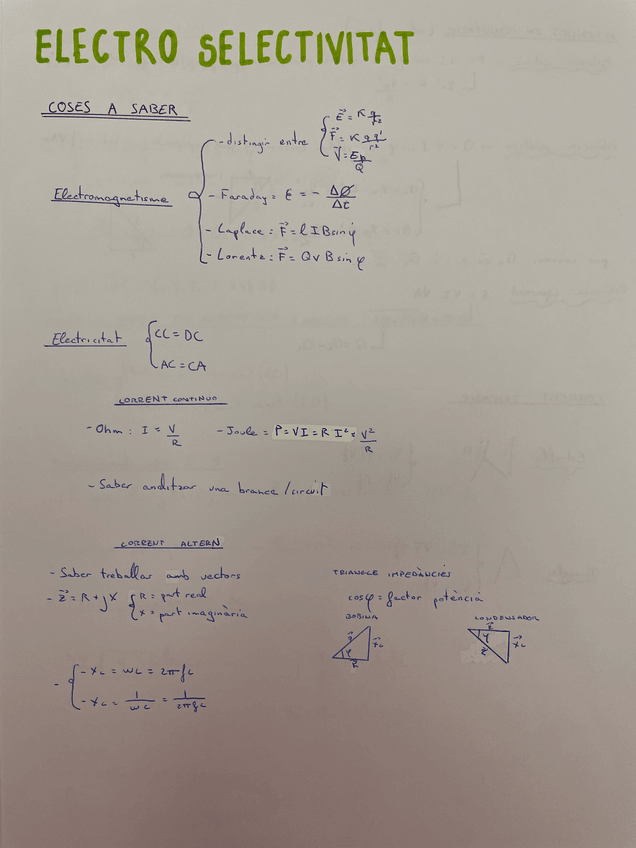 ELECTRO SELECTIVITAT
COSES A SABER
Electromagnetisme
- distingir entre
E⃗ = K q/r²
F⃗ = K q q'/r²
V⃗ = Ep/Q
- Faraday = ε = - ΔØ/Δt
- Laplace : F⃗ = l I B sin φ
- Lorentz : F⃗ = Q v B sin φ
Electricitat
CC = DC
AC = CA
CORRENT CONTINUO
- Ohm : I = V/R - Joule = P = VI = R I² = V²/R
- Saber analitzar una branca / circuit
CORRENT ALTERN
- Saber treballar amb vectors
- Z⃗ = R + j X
R = part real
X = part imaginària
- XL = WL = 2πfL
- XC = 1/WC = 1/2πfC
TRIANGLE IMPEDÀNCIES
cosφ = factor potència
BOBINA CONDENSADOR
Z⃗ φ R⃗ X⃗L
R⃗ φ Z⃗ X⃗C